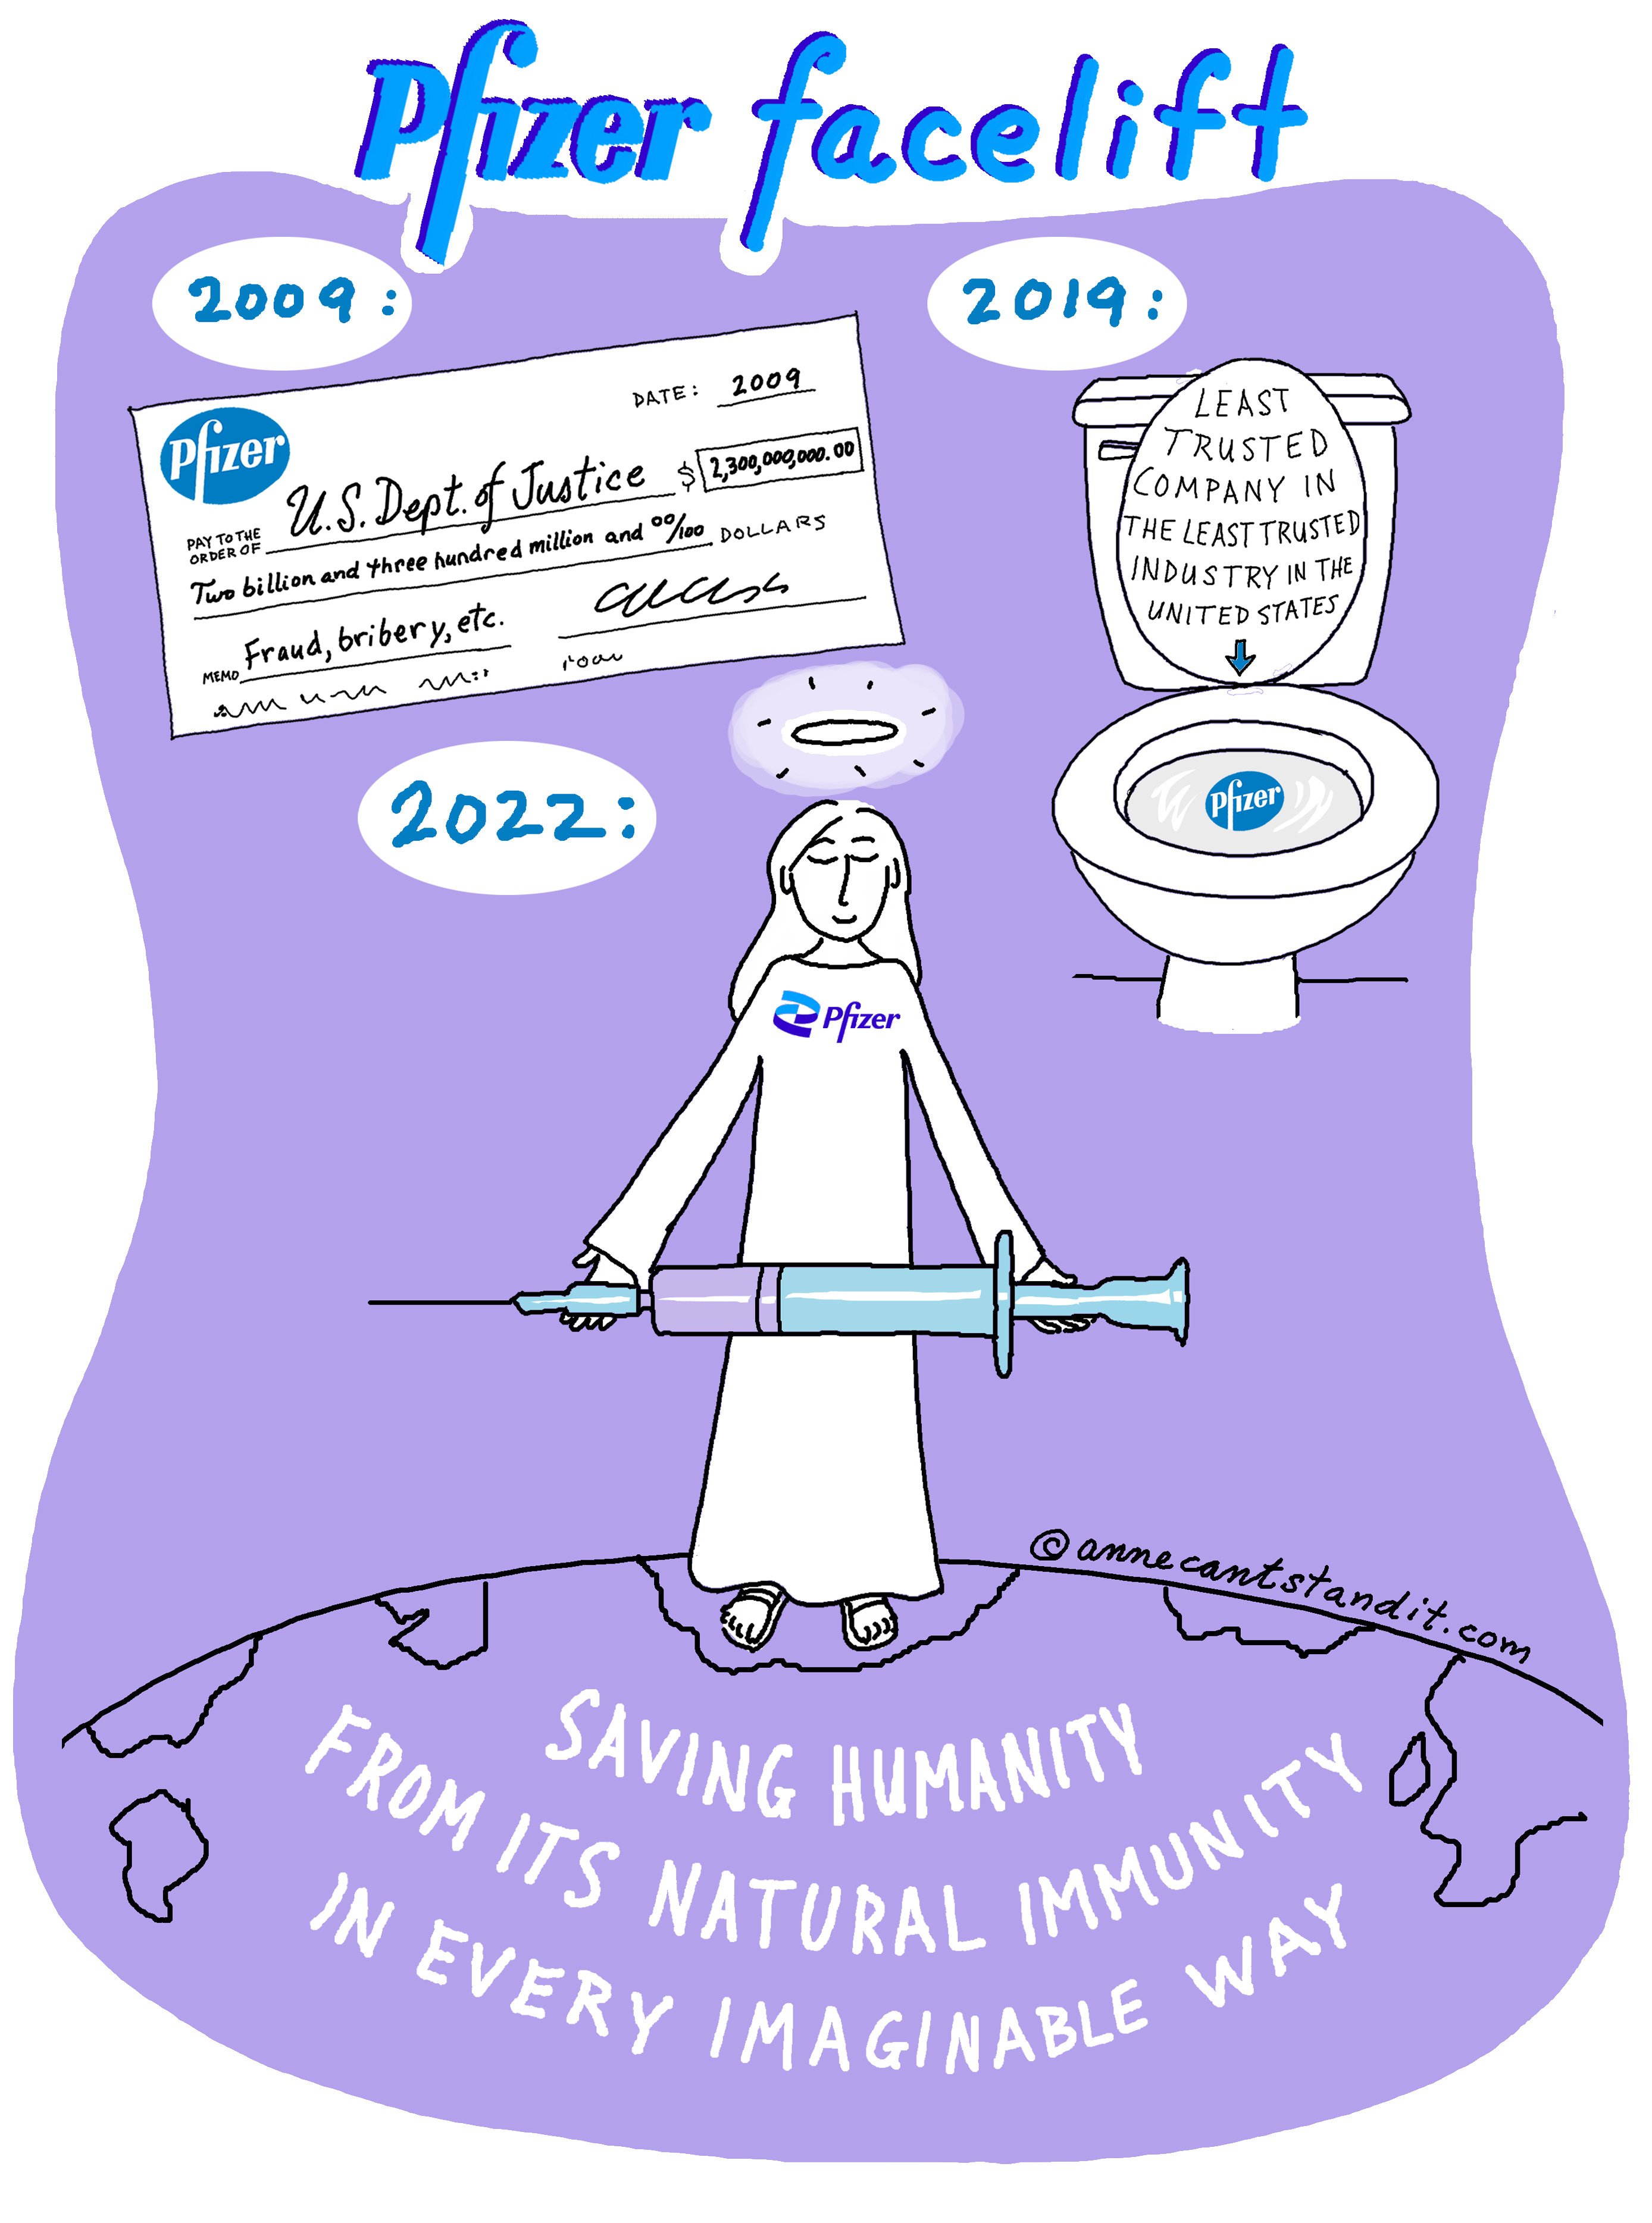 Pfizer facelift
2009:
DATE: 2009
Pfizer
PAY TO THE
ORDER OF U.S. Dept. of Justice $ 2,300,000,000.00
Two billion and three hundred million and 00/100 DOLLARS
MEMO Fraud, bribery, etc.
2019:
LEAST
TRUSTED
COMPANY IN
THE LEAST TRUSTED
INDUSTRY IN THE
UNITED STATES
Pfizer
2022:
Pfizer
©annecantstandit.com
SAVING HUMANITY
FROM ITS NATURAL IMMUNITY
IN EVERY IMAGINABLE WAY